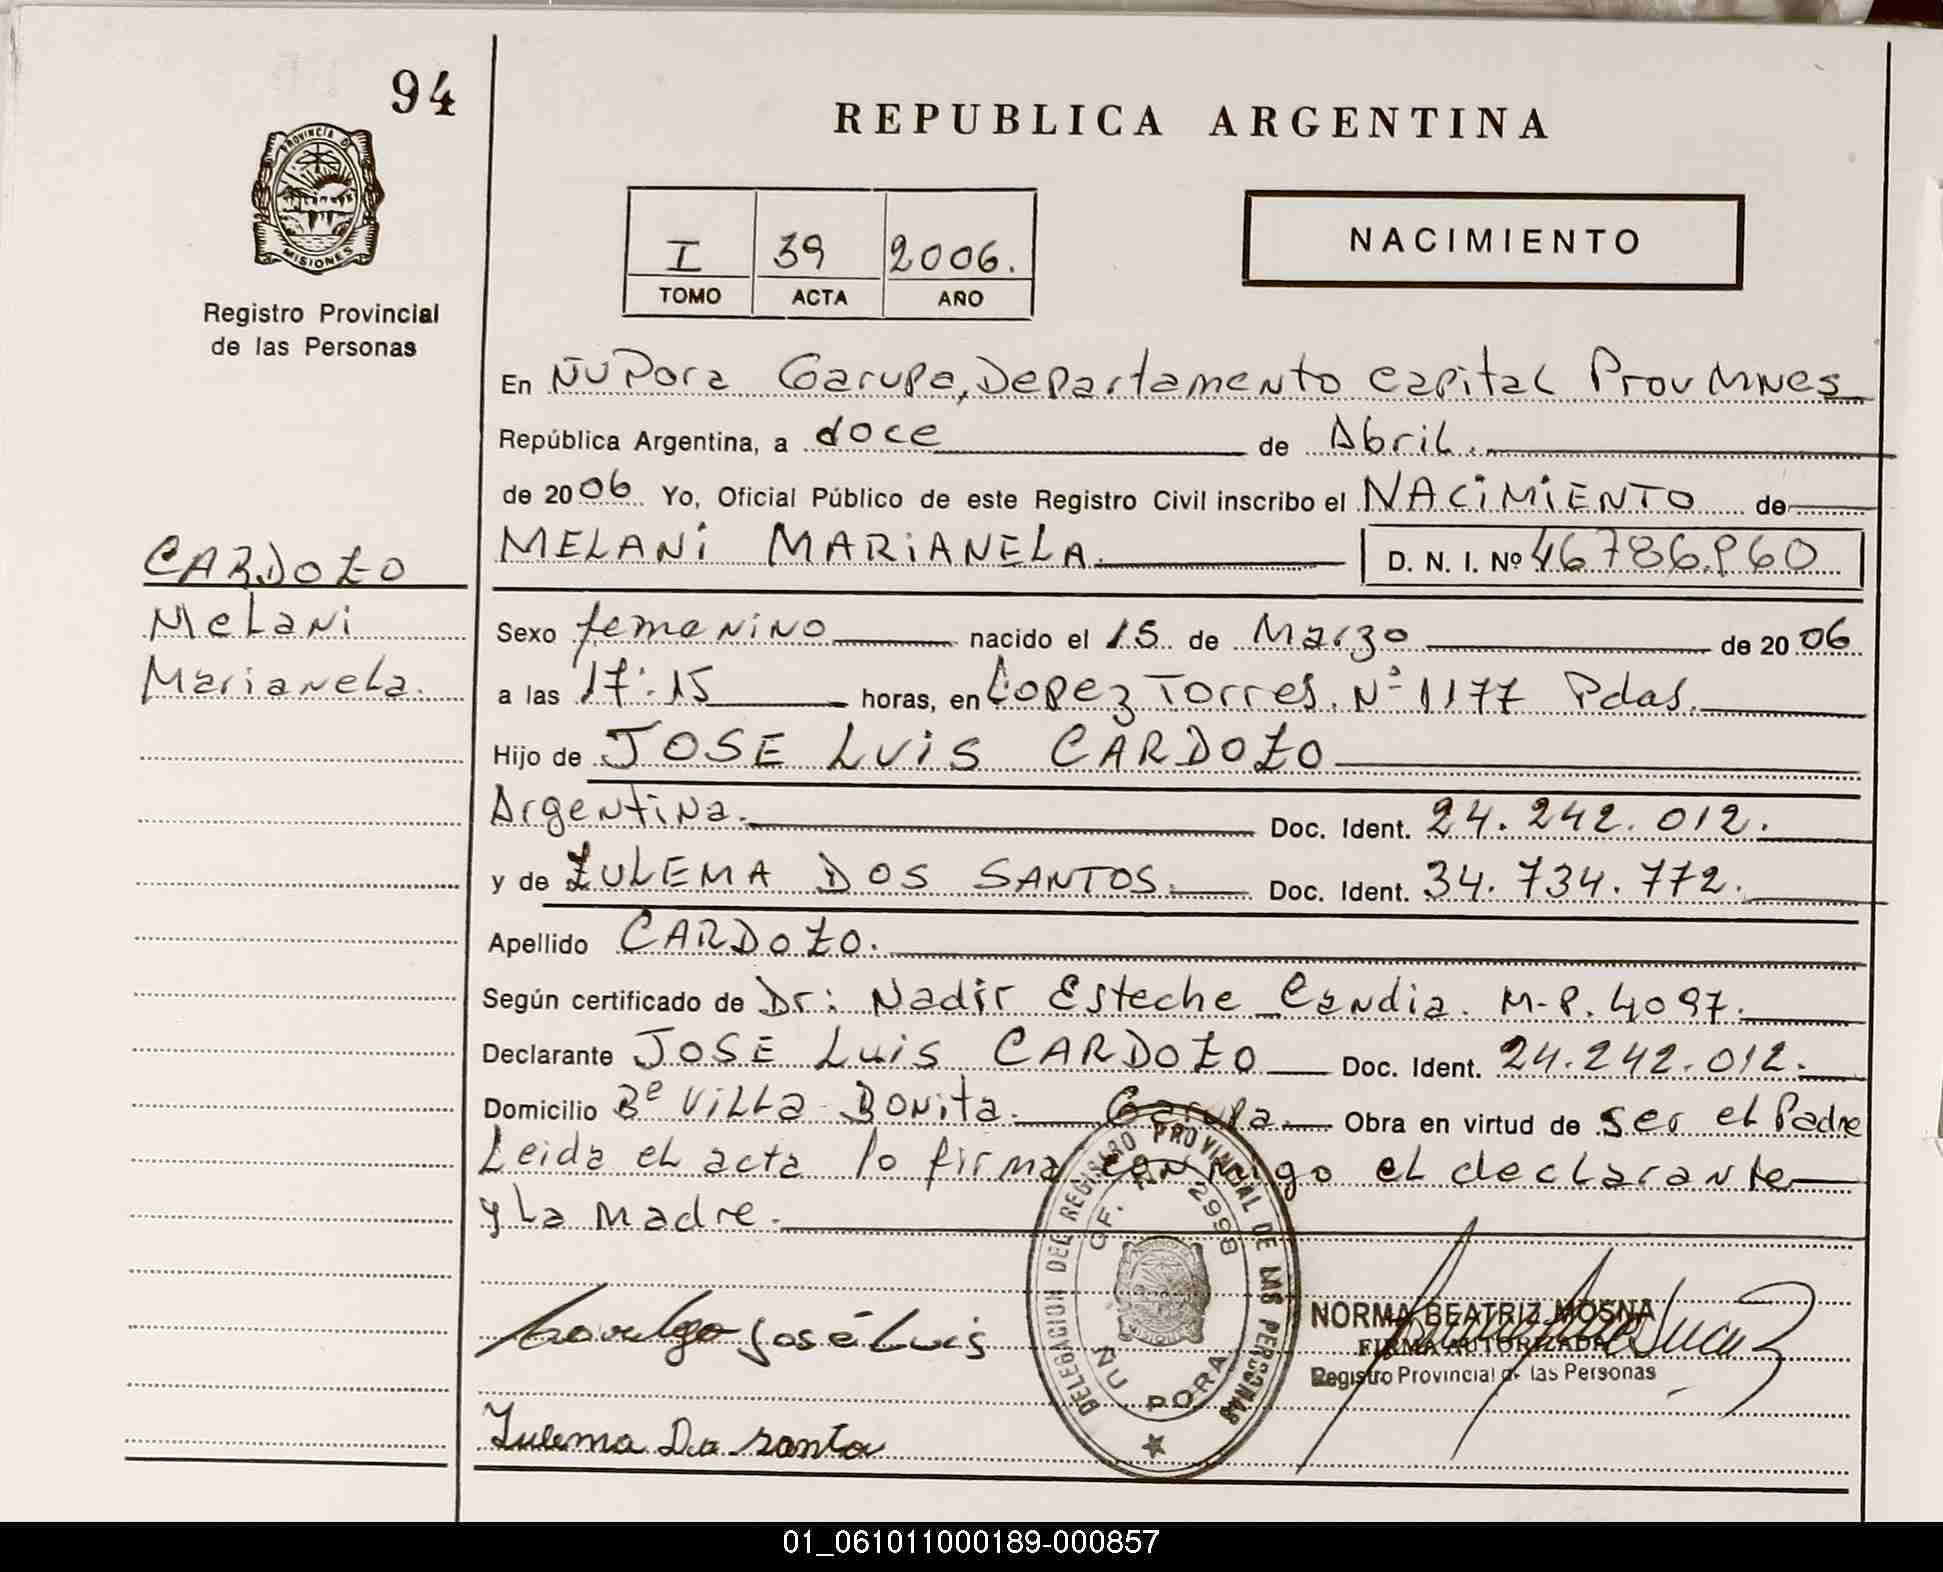 94
REPUBLICA ARGENTINA
PROVINCIA DE
MISIONES
Registro Provincial
de las Personas
I 39 2006.
TOMO ACTA AÑO
NACIMIENTO
En ÑU Pora Garupa, Departamento Capital Prov Mnes
República Argentina, a doce de Abril.
de 2006 Yo, Oficial Público de este Registro Civil inscribo el NACIMIENTO de
MELANI MARIANELA. D. N. I. Nº 46786.960
CARDOZO
Melani
Marianela.
Sexo femenino nacido el 15 de Marzo de 2006
a las 17:15 horas, en Lopez Torres. Nº 1177 Pdas.
Hijo de JOSE LUIS CARDOZO
Argentina. Doc. Ident. 24.242.012.
y de ZULEMA DOS SANTOS. Doc. Ident. 34.734.772.
Apellido CARDOZO.
Según certificado de Dr: Nadir Esteche Candia. M-P. 4097.
Declarante JOSE LUIS CARDOZO Doc. Ident. 24.242.012.
Domicilio Bº Villa Bonita. Garupa Obra en virtud de ser el Padre
Leida el acta lo firma conmigo el declarante
y La Madre.
DELEGACION DEL REGISTRO PROVINCIAL DE LAS PERSONAS
OF. 2998
ÑU PORA
José Luis
NORMA BEATRIZ MOSNA
FIRMA AUTORIZADA
Registro Provincial de las Personas
Zulema Do santo
01_061011000189-000857